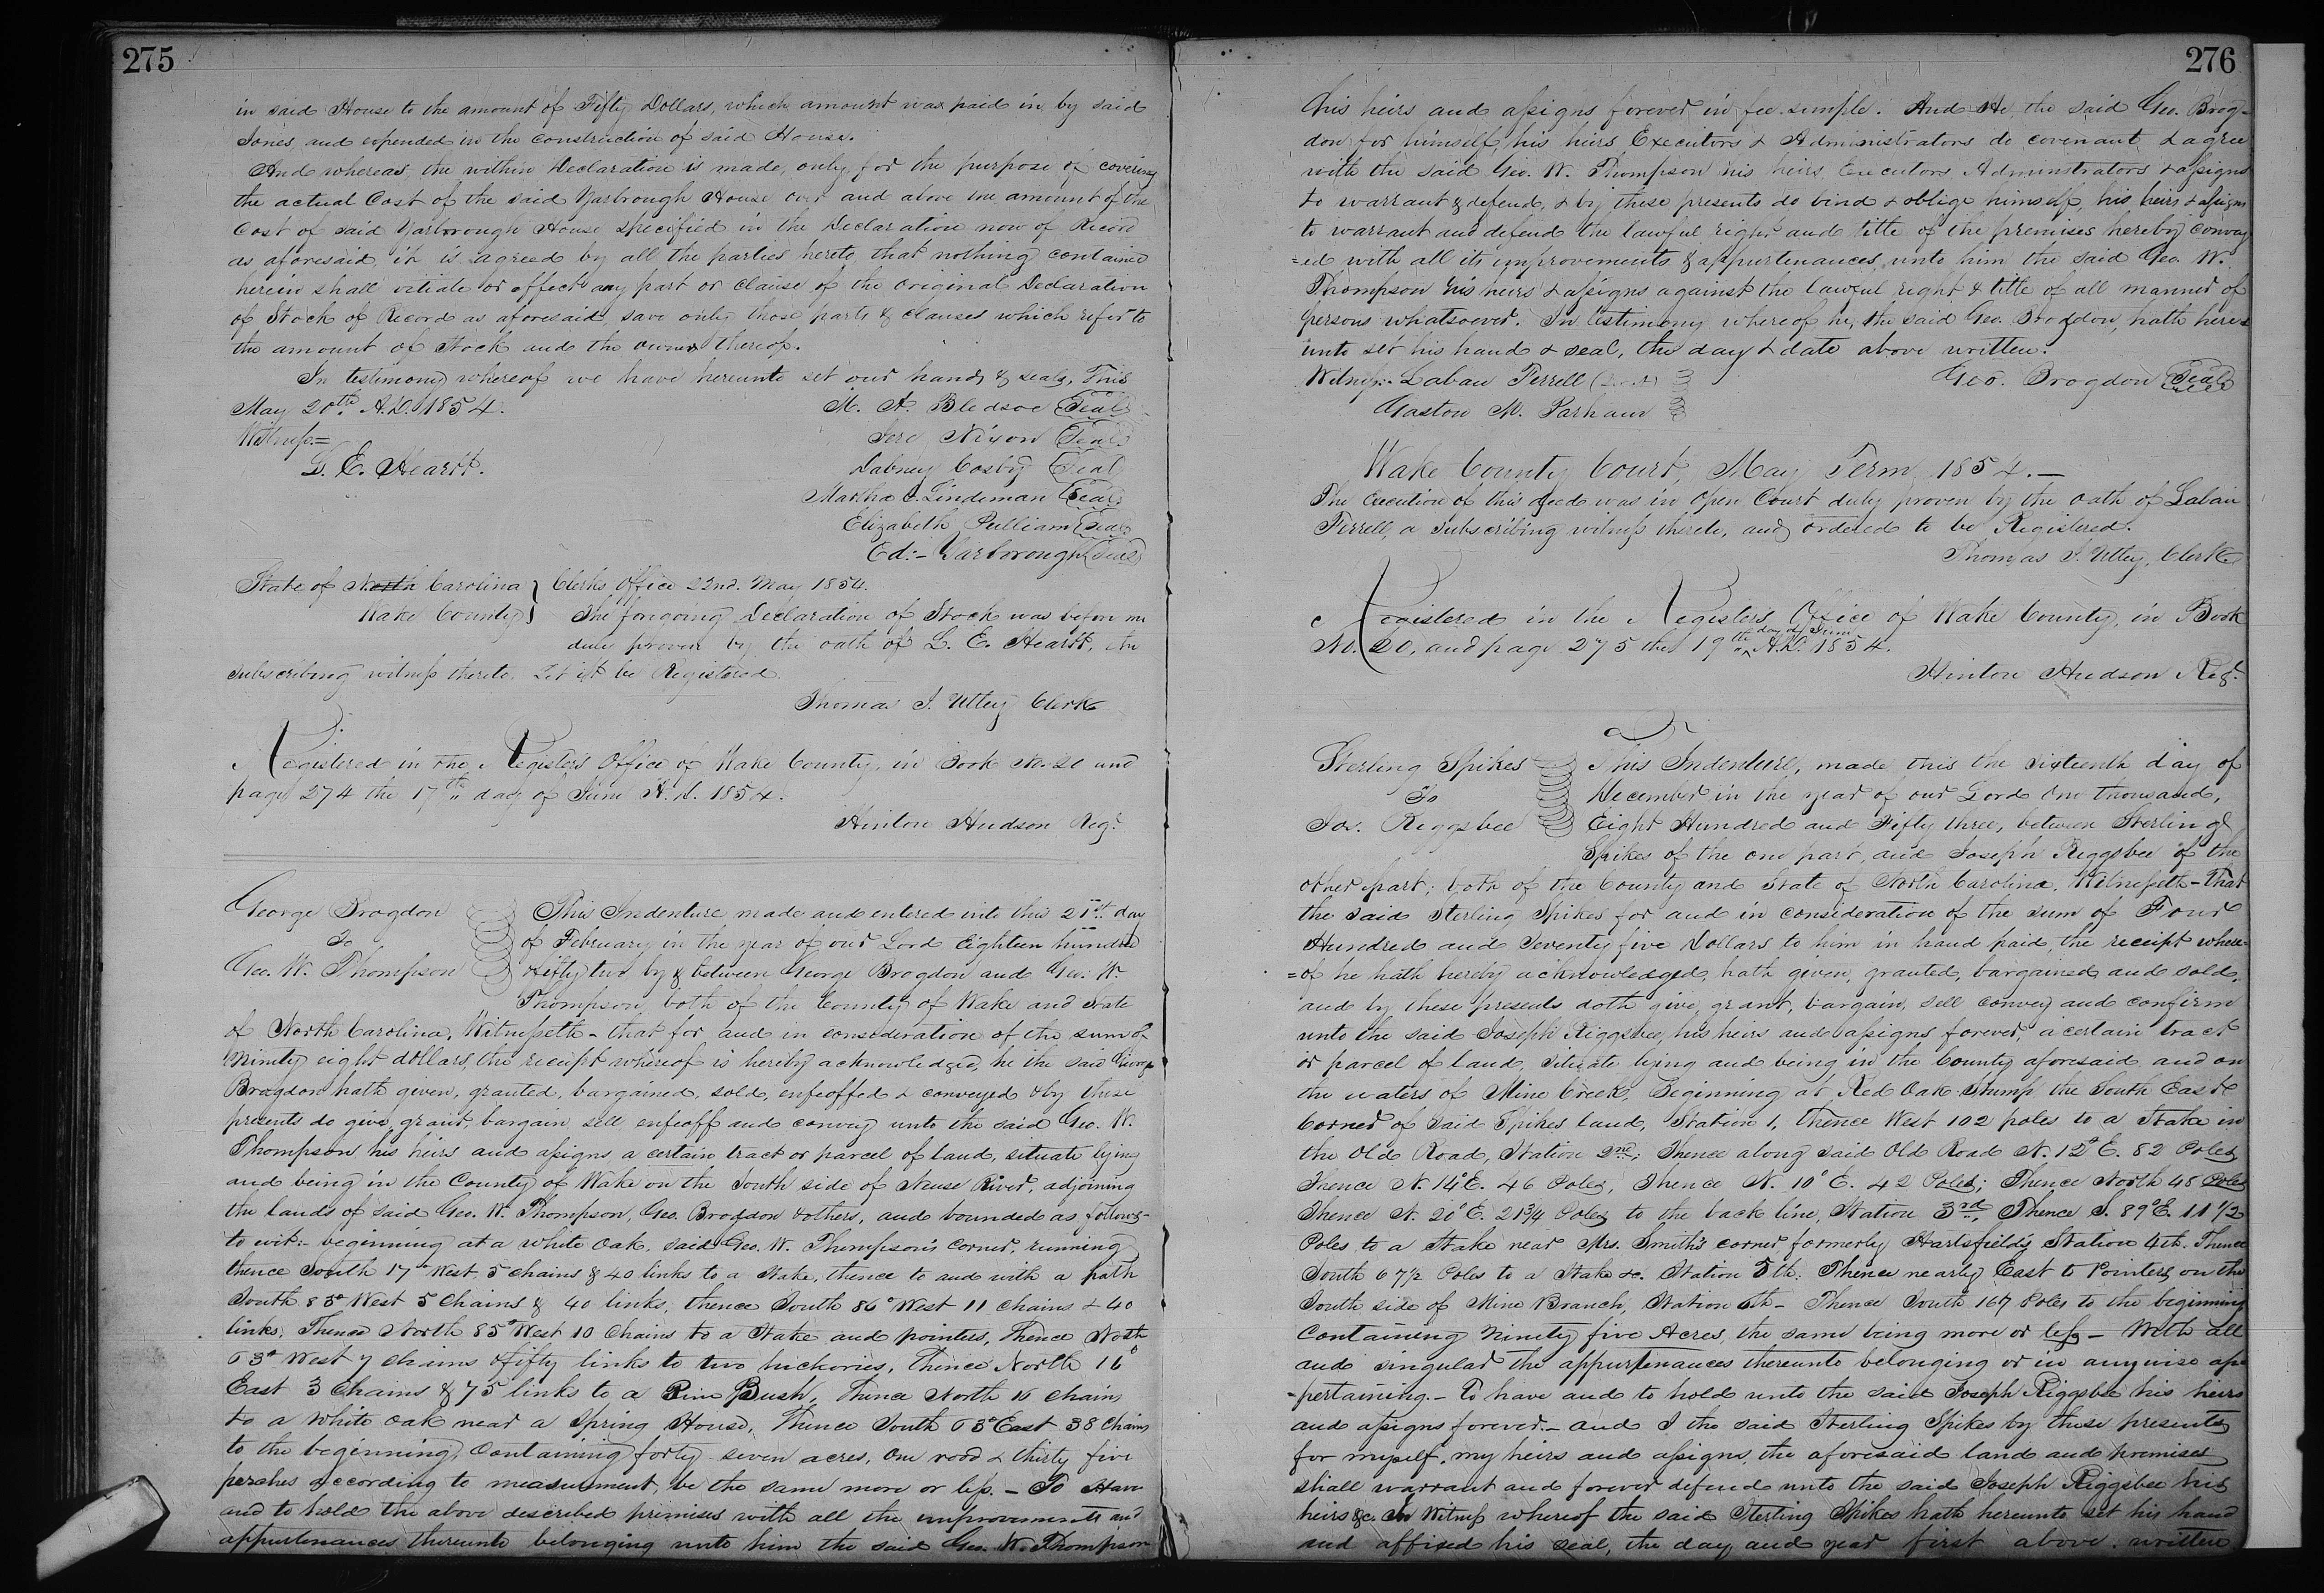 275
in said House to the amount of Fifty Dollars, which amount was paid in by said
Jones, and expended in the construction of said House.
And whereas, the within Declaration is made, only for the purpose of covering
the actual Cost of the said Yarbrough House over and above the amount of the
Cost of said Yarborough House specified in the Declaration now of Record
as aforesaid, it is agreed by all the parties hereto, that nothing contained
herein shall vitiate or effect any part or clause of the original Declaration
of Stock of Record as aforesaid, save only those parts & clauses which refer to
the amount of Stock and the owners thereof.
In testimony whereof we have hereunto set our hands & seals, This
May 20th A.D. 1854.
M. A. Bledsoe Seal
Witness=
Jere Nixon Seal
L. E. Heartt.
Dabney Cosby Seal
Martha Lindeman Seal
Elizabeth Pulliam Seal
Ed:- Yarborough Seal
State of North Carolina } Clerks Office 22nd. May 1854.
Wake County } The foregoing Declaration of Stock was before me
duly proven by the oath of L. E. Heartt, the
subscribing witness thereto. Let it be Registered.
Thomas J. Utley Clerk
Registered in the Registers Office of Wake County, in Book No. 20 and
page 274 the 17th day of June A.D. 1854.
Hinton Hudson Regr.
George Brogdon
To
Geo. W. Thompson
This Indenture made and entered into this 21st. day
of February in the year of our Lord Eighteen hundred
& fifty two by & between George Brogdon and Geo. W.
Thompson both of the County of Wake and State
of North Carolina, Witnesseth - that for and in consideration of the sum of
Ninety eight dollars, the receipt whereof is hereby acknowledged, he the said George
Brogdon hath given, granted, bargained, sold, enfeoffed & conveyed & by these
presents do give, grant, bargain, sell, enfeoff and convey unto the said Geo. W.
Thompson his heirs and assigns a certain tract or parcel of land, situate lying
and being in the County of Wake on the South side of Neuse River, adjoining
the lands of said Geo. W. Thompson, Geo. Brogdon & others, and bounded as follows-
to wit:- beginning at a white Oak, said Geo. W. Thompson's Corner, running
thence South 17° West, 5 chains & 40 links to a Stake, thence to and with a path
South 83° West 5 Chains & 40 links, thence South 86° West 11 chains & 40
links, Thence North 85° West 10 Chains to a Stake and pointers, Thence North
63° West 7 chains & fifty links to two hickories, Thence North 16°
East 3 Chains & 75 links to a Pine Bush, Thence North 16 chains
to a white oak near a Spring House, Thence South 63° East 38 Chains
to the beginning, Containing forty seven acres, One rood & thirty five
perches according to measurement, be the same more or less. - To Have
and to hold the above described premises with all the improvements and
appurtenances thereunto belonging unto him the said Geo. W. Thompson
276
his heirs and assigns forever in fee-simple. And He the said Geo. Brog-
don for himself, his heirs, Executors & Administrators do covenant & agree
with the said Geo. W. Thompson his heirs, Executors Administrators & assigns
to warrant & defend, & by these presents do bind & oblige himself, his heirs & assigns
to warrant and defend the lawful right and title of the premises hereby convey
=ed with all its improvements & appurtenances unto him the said Geo W.
Thompson his heirs & assigns against the lawful right & title of all manner of
persons whatsoever. In testimony whereof he, the said Geo. Brogdon, hath here=
unto set his hand & seal, the day & date above written.
Witness:- Laban Ferrell
Geo. Brogdon Seal
Gaston M. Parham
Wake County Court, May Term 1854.-
The execution of this deed was in Open Court duly proven by the oath of Laban
Ferrell, a subscribing witness thereto, and ordered to be Registered.
Thomas J. Utley, Clerk
Registered in the Registers Office of Wake County, in Book
No. 20, and page 275 the 19th day of June A.D. 1854.
Hinton Hudson Regr.
Sterling Spikes
To
Jos. Riggsbee
This Indenture, made this the Sixteenth day of
December in the year of our Lord One thousand,
Eight Hundred and Fifty three, between Sterling
Spikes of the one part, and Joseph Riggsbee of the
other part; both of the County and State of North Carolina, Witnesseth - That
the said Sterling Spikes for and in consideration of the sum of Four
Hundred and Seventy five Dollars to him in hand paid, the receipt where-
=of he hath hereby acknowledged, hath given, granted, bargained and sold,
and by these presents doth give, grant, bargain, sell convey and confirm
unto the said Joseph Riggsbee, his heirs and assigns forever, a certain tract
or parcel of land, situate lying and being in the County aforesaid and on
the waters of Mine Creek, Beginning at Red Oak Stump the South East
Corner of Said Spikes land, Station 1, thence West 102 poles to a Stake in
the Old Road, Station 2nd; Thence along said Old Road N. 12° E. 82 Poles
Thence N. 14° E. 46 Poles, Thence N. 10° E. 42 Poles; Thence North 48 Poles
Thence N. 20° E. 21 3/4 Poles to the back line, Station 3rd, Thence S. 89° E. 11 1/2
Poles to a Stake near Mrs. Smith's corner formerly Hartsfield's Station 4th. Thence
South 67 1/2 Poles to a Stake &c. Station 5th: Thence nearly East to Pointers on the
South side of Mine Branch, Station 6th - Thence South 167 Poles to the beginning
Containing Ninety five Acres, the same being more or less - With all
and singular the appurtenances thereunto belonging or in anywise ap-
-pertaining.- To have and to hold unto the said Joseph Riggsbee his heirs
and assigns forever.- And I the said Sterling Spikes by these presents
for myself, my heirs and assigns, the aforesaid land and premises
shall warrant and forever defend unto the said Joseph Riggsbee his
heirs &c. In Witness whereof the said Sterling Spikes hath hereunto set his hand
and affixed his seal, the day and year first above written